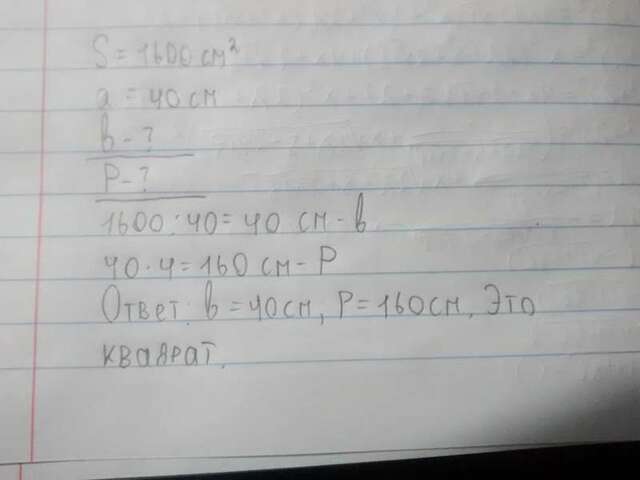 S = 1600 см²
a = 40 см
b - ?
P - ?
1600 : 40 = 40 см - b
40 · 4 = 160 см - P
Ответ: b = 40см, P = 160см, Это
квадрат.